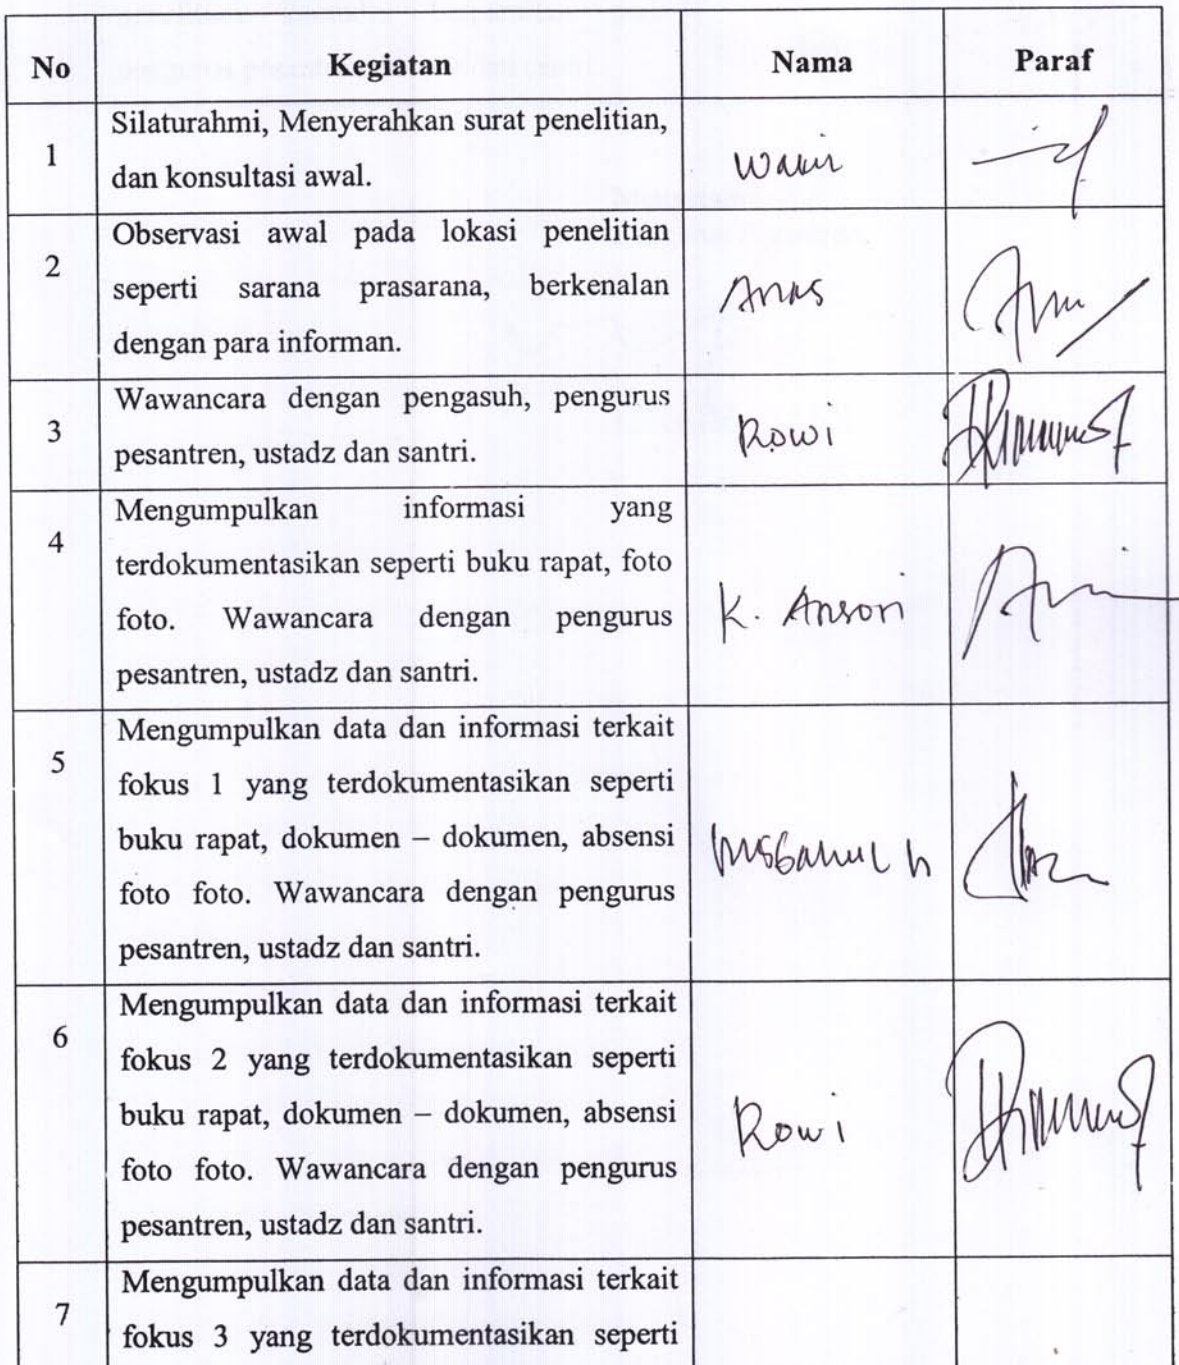 No Kegiatan Nama Paraf
1
Silaturahmi, Menyerahkan surat penelitian,
dan konsultasi awal.
2
Observasi awal pada lokasi penelitian
seperti sarana prasarana, berkenalan
dengan para informan.
Anas
3
Wawancara dengan pengasuh, pengurus
pesantren, ustadz dan santri.
Rowi
4
Mengumpulkan informasi yang
terdokumentasikan seperti buku rapat, foto
foto. Wawancara dengan pengurus
pesantren, ustadz dan santri.
K. Ansori
5
Mengumpulkan data dan informasi terkait
fokus 1 yang terdokumentasikan seperti
buku rapat, dokumen – dokumen, absensi
foto foto. Wawancara dengan pengurus
pesantren, ustadz dan santri.
6
Mengumpulkan data dan informasi terkait
fokus 2 yang terdokumentasikan seperti
buku rapat, dokumen – dokumen, absensi
foto foto. Wawancara dengan pengurus
pesantren, ustadz dan santri.
Rowi
7
Mengumpulkan data dan informasi terkait
fokus 3 yang terdokumentasikan seperti